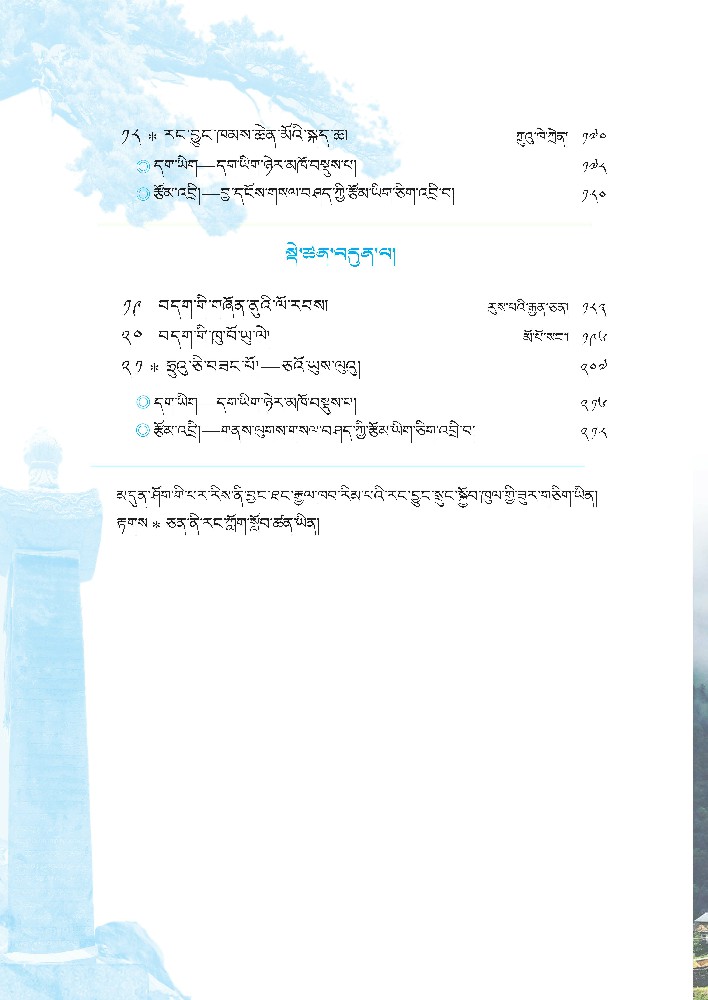 ༡༨ * རང་བྱུང་ཁམས་ཆེན་མོའི་སྐད་ཆ། ཀྲུའུ་ཁེ་ཀྲེན༎ ༡༧༠
◎ དག་ཡིག—དག་ཡིག་ཉེར་མཁོ་བསྡུས་པ། ༡༧༨
◎ རྩོམ་འབྲི།—བྱ་དངོས་གསལ་བཤད་ཀྱི་རྩོམ་ཡིག་ཅིག་འབྲི་བ། ༡༨༠
སྡེ་ཚན་བདུན་པ།
༡༩ བདག་གི་གཞོན་ནུའི་ལོ་རབས། རུས་པའི་རྒྱན་ཅན། ༡༨༢
༢༠ བདག་གི་ཁུ་བོ་ཡུ་ལེ། མོ་པོ་སང་། ༡༩༦
༢༡ * ཧྲུའུ་ཅི་བཟང་པོ—ཅའོ་ཡུས་ལུའུ། ༢༠༧
◎ དག་ཡིག དག་ཡིག་ཉེར་མཁོ་བསྡུས་པ། ༢༡༦
◎ རྩོམ་འབྲི།—གནས་ལུགས་གསལ་བཤད་ཀྱི་རྩོམ་ཡིག་ཅིག་འབྲི་བ ༢༡༨
མདུན་ཤོག་གི་པར་རིས་ནི་བྱང་ཐང་རྒྱལ་ཁབ་རིམ་པའི་རང་བྱུང་སྲུང་སྐྱོབ་ཁུལ་གྱི་ཟུར་གཅིག་ཡིན།
རྟགས * ཅན་ནི་རང་ཀློག་སློབ་ཚན་ཡིན།